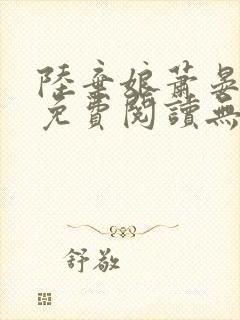 陸棄娘蕭晏
免費閱讀無
舒敬